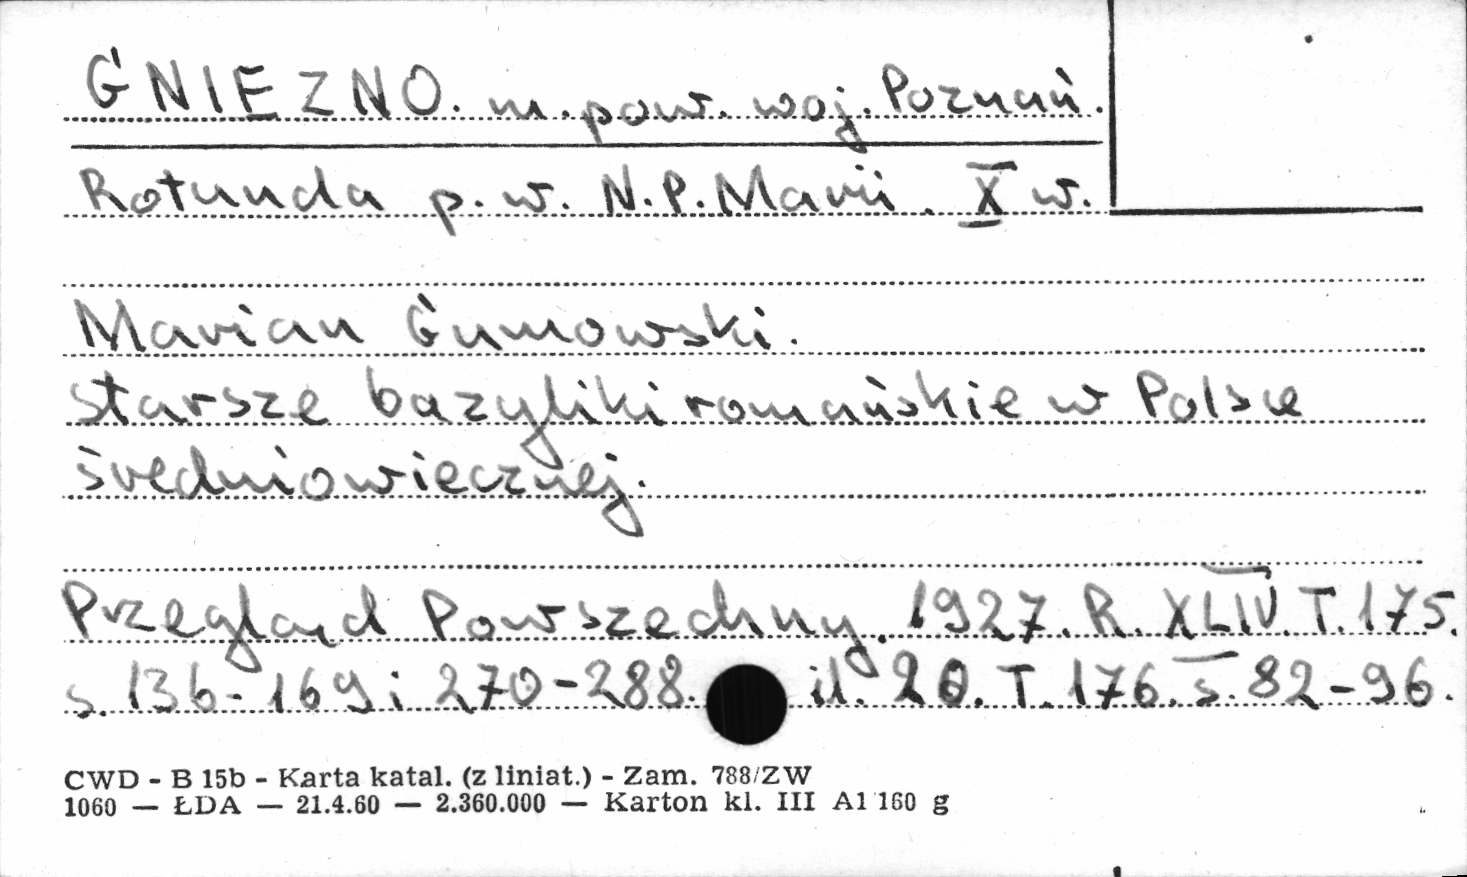 GNIEZNO. m. pow. woj. Poznań.
Rotunda p. w. N.P. Marii. X w.
Marian Gumowski.
starsze bazyliki romańskie w Polsce
średniowiecznej.
Przegląd Powszechny. 1927. R. XLIV. T. 175.
s. 136-169 i 270-288. il. 20. T. 176. s. 82-96.
CWD - B 15b - Karta katal. (z liniat.) - Zam. 788/ZW
1060 — ŁDA — 21.4.60 — 2.360.000 — Karton kl. III A1 160 g